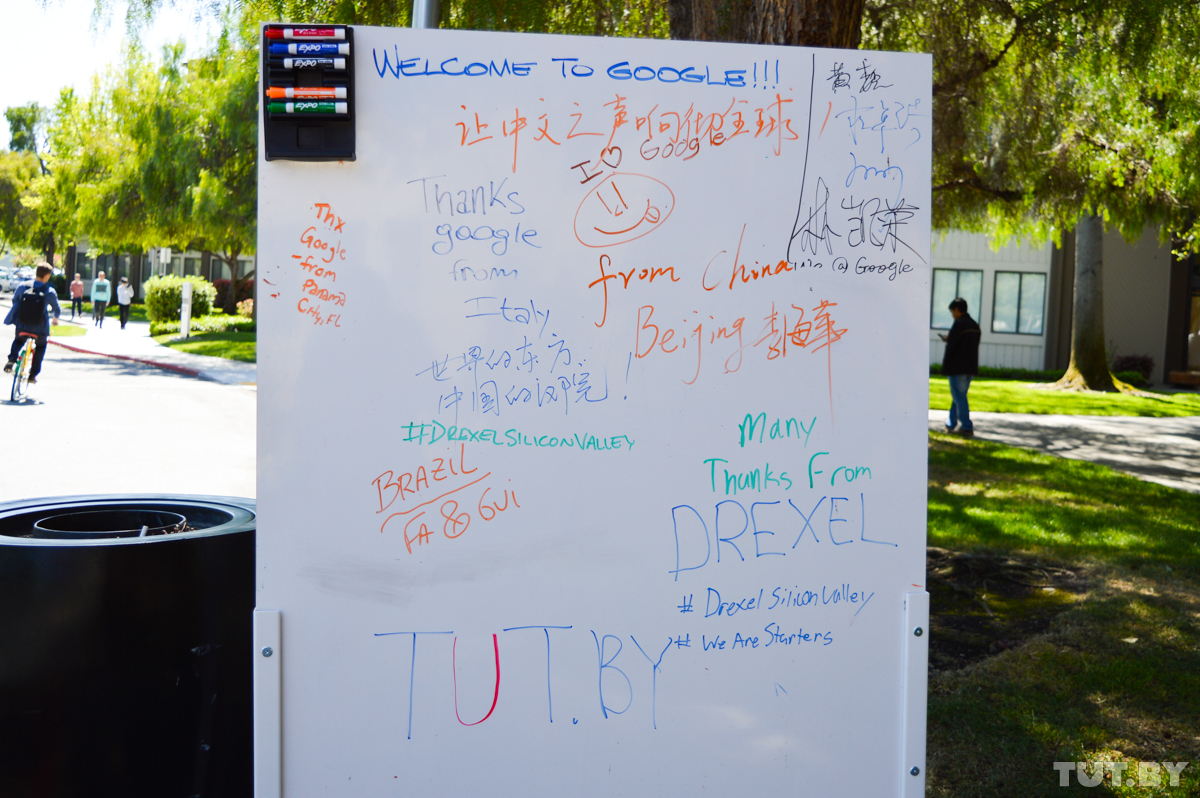 EXPO
EXPO
EXPO
EXPO
WELCOME TO GOOGLE!!!
让中文之声响彻全球
I ♡ Google
Thanks
google
from
Italy
Thx
Google
-from
Panama
City, FL
from China
Beijing
@ Google
世界的东方、
中国的汉院!
#DREXELSILICONVALLEY
BRAZIL
FA & GUI
Many
Thanks From
DREXEL
# Drexel Silicon Valley
# We Are Starters
TUT.BY
TUT.BY